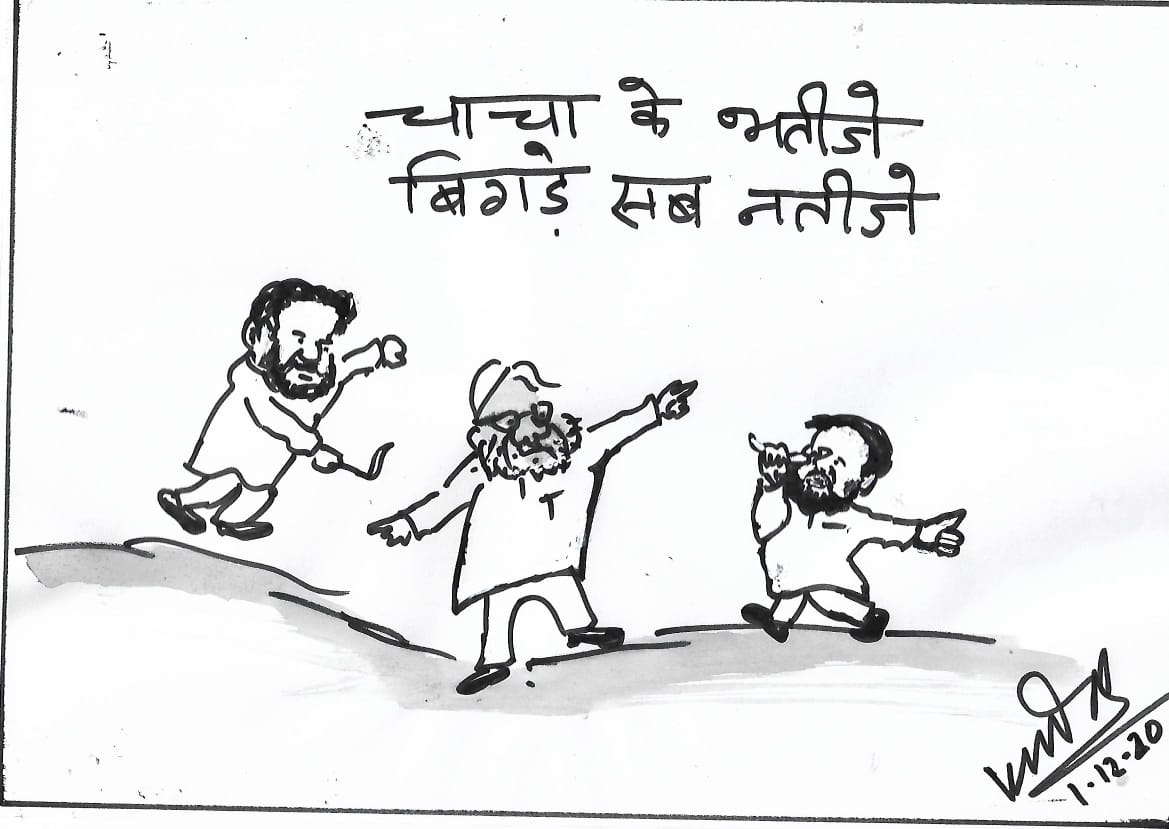 चाचा के भतीजे
बिगड़े सब नतीजे
1.12.20